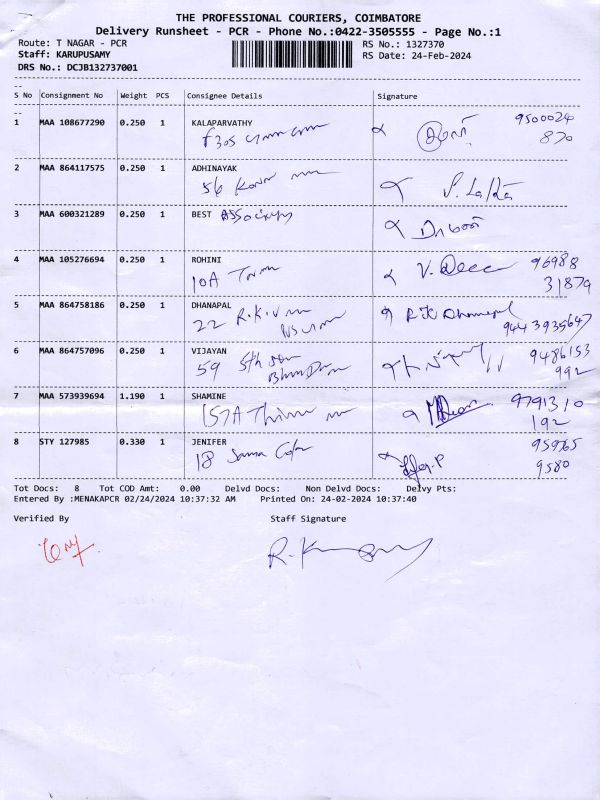 THE PROFESSIONAL COURIERS, COIMBATORE
Delivery Runsheet - PCR - Phone No.:0422-3505555 - Page No.:1
Route: T NAGAR - PCR RS No.: 1327370
Staff: KARUPUSAMY RS Date: 24-Feb-2024
DRS No.: DCJB132737001
S No Consignment No Weight PCS Consignee Details Signature
1 MAA 108677290 0.250 1 KALAPARVATHY 9500024
F305 870
2 MAA 864117575 0.250 1 ADHINAYAK
56
3 MAA 600321289 0.250 1 BEST
4 MAA 105276694 0.250 1 ROHINI 96988
10A 31879
5 MAA 864758186 0.250 1 DHANAPAL
22 R.K.V 9443935647
6 MAA 864757096 0.250 1 VIJAYAN 9486153
59 5th 992
7 MAA 573939694 1.190 1 SHAMINE 9791310
157A 192
8 STY 127985 0.330 1 JENIFER 95965
18 9580
Tot Docs: 8 Tot COD Amt: 0.00 Delvd Docs: Non Delvd Docs: Delvy Pts:
Entered By :MENAKAPCR 02/24/2024 10:37:32 AM Printed On: 24-02-2024 10:37:40
Verified By Staff Signature